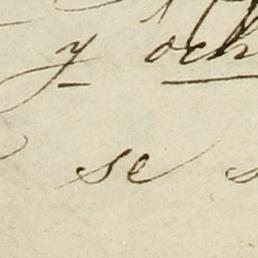 y och
se